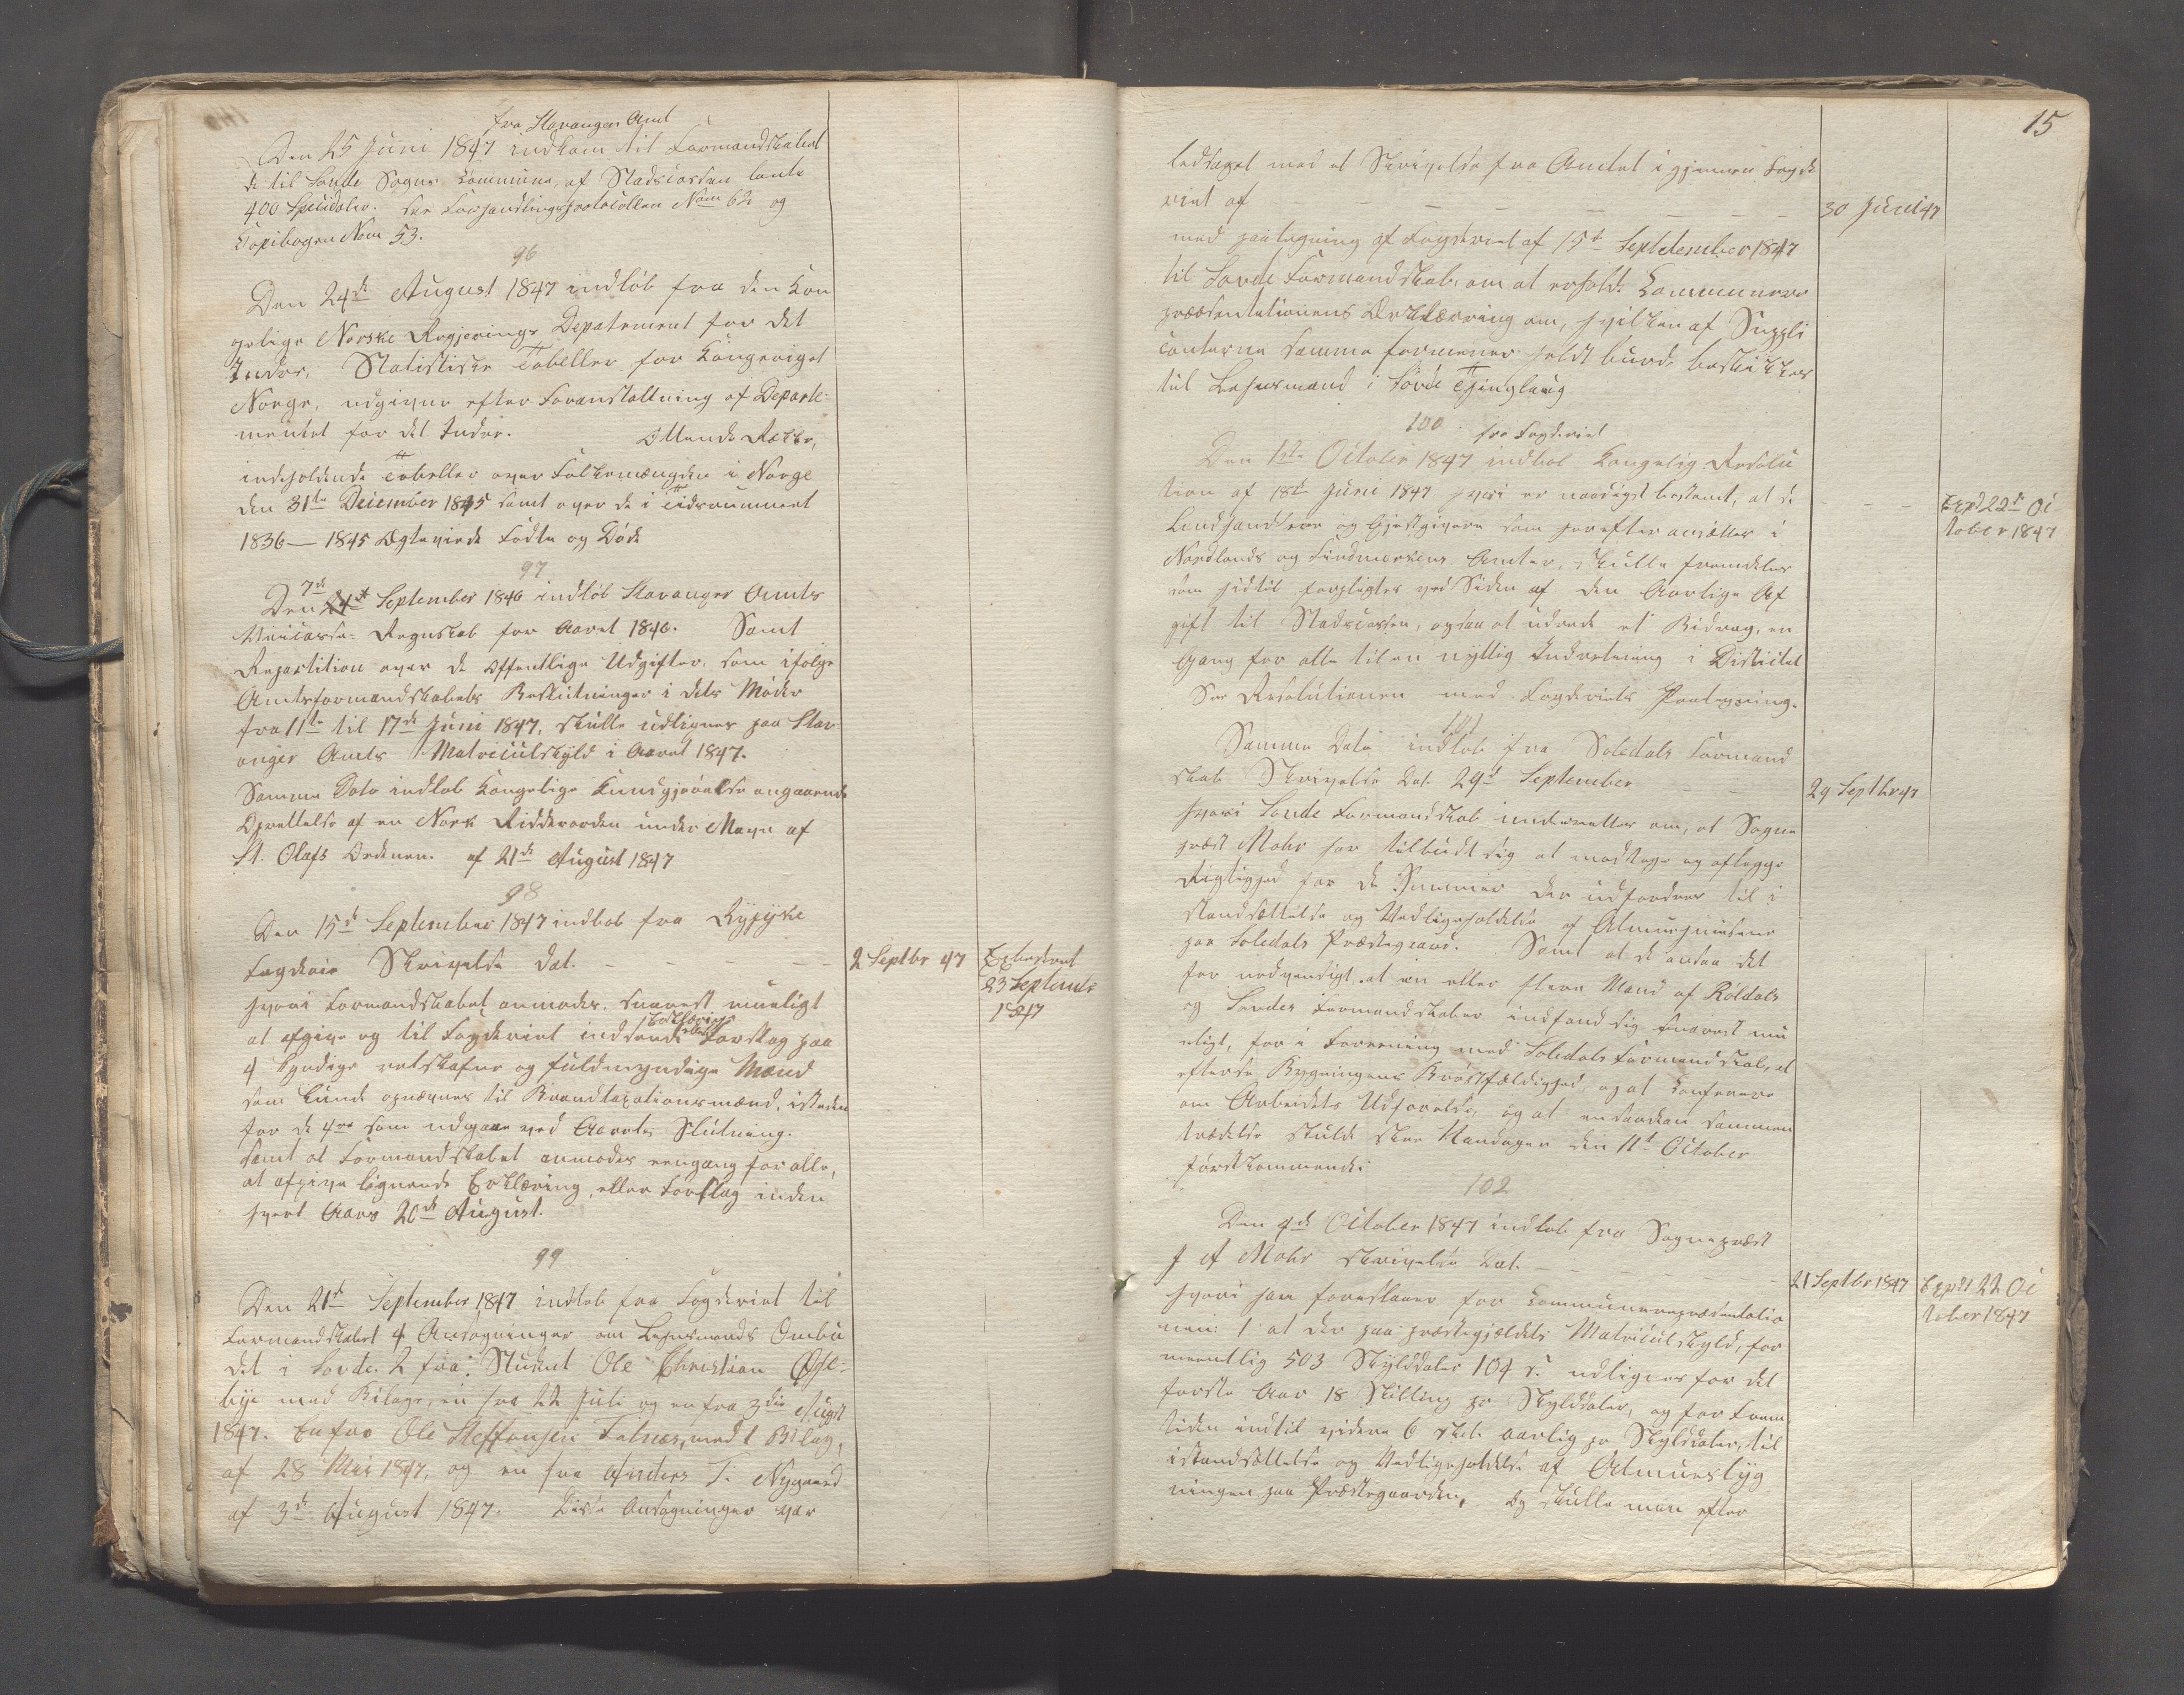 fra Stavanger Amt
Den 25 Juni 1847 indkom til Formandskabet
de til Sande Sogns Kommune, af Stadscassen laante
400 Speciedaler. See Forhandlingsprotocollen Nom 62 og
Copibogen Nom 53.
96
Den 24de August 1847 indløb fra den Kon
gelige Norske Regjerings Depatement for det
Indre, Statistiske Tabeller for Kongeriget
Norge, udgivne efter Foranstaltning af Departe-
mentet for det Indre. Ottende Række,
indeholdende Tabeller over Folkemængden i Norge
den 31te December 1845 samt over de i Tidsrummet
1836 — 1845 Ægteviede Fødte og Døde
97
7de
Den September 1846 indløb Stavanger Amts
Regnskab for Aaret 1846. Samt
Repartition over de offentlige Udgifter, som ifølge
Amtsformandskabets Beslutninger i dets Møder
fra 11te til 17de Juni 1847, skulle udlignes paa Stav-
anger Amts Matriculskyld i Aaret 1847.
Samme Dato indløb Kongelige Kundgjørelse angaaende
Oprettelse af en Norsk Ridderorden under Navn af
St. Olafs Ordenen. af 21de August 1847
98
Den 15de September 1847 indløb fra Ryfylke
Fogderie Skrivelse Dat. — — — — — 2 Septbr 47 Expederet
23 Septembr
1847
hvori Formandskabet anmodes, snarest mueligt
at afgive og til Fogderiet indsende Erklæring eller Forslag paa
4 kyndige retskafne og fuldmyndige Mænd
som kunde opnævnes til Brandtaxationsmænd, isteden
for de 4re som udgaae ved Aarets Slutning.
samt at Formandskabet anmodes eengang for alle,
at afgive lignende Erklæring, eller Forslag inden
hvert Aars 20de August.
99
Den 21de September 1847 indløb fra Fogderiet til
Formandskabet 4 Ansøgninger om Lehnsmands Ombu
det i Sovde. 2 fra Student Ole Christian
bye med Bilage, en fra 22 Juli og en fra 3die Augst
1847. En fra Ole Steffensen Fatnes, med 1 Bilag,
af 28 Mai 1847, og en fra Anders T. Nygaard
af 3de August 1847. Disse Ansøgninger var
15
ledsaget med et Skrivelse fra Amtet igjennem Fogde
riet af — — — — — — 30 Juni 47
med paategning af Fogderiet af 15de Septetember 1847
til Sovde Formandskab, om at erholde Kommunere
præsentationens Erklæring om, hvilken af Suppli
canterne samme formener heldt burde beskikkes
til Lehnsmand i Sovde Thinglaug
100
fra Fogderiet
Den 1ste October 1847 indkom Kongelig Resolu
tion af 18de Juni 1847 hvori er naadigst bestemt, at de — — Expd 22de Oc
tober 1847
Landhandlere og Gjestgivere som herefter ansættes i
Nordlands og Findmarkens Amter, skulle fremdeles
som hidtil forpligtes ved Siden af den Aarlige Af
gift til Stadscassen, ogsaa at udrede et Bidrag, en
Gang for alle til en nyttig Indretning i Districtet
See Resolutionen med Fogderiets Paategning.
101
Samme Dato indløb fra Soledals Formand
skab Skrivelse Dat. 29de September — — 29 Septbr 47
hvori Sovde Formandskab underretter om, at Sogne
præst Mohr har tilbudt sig at modtage og aflægge
Rigtighed for de Summer der udfordres til i
standsættelse og Vedligeholdelse af Almuehusene
paa Soledals Præstegaard. Samt at de ansaa det
for nødvendigt at en eller flere Mænd af Røldals
og Sovdes Formandskaber indfandt sig snarest mu
eligt, for i Forening med Soledals Formandskab, at
efterse Bygningens Brøstfældighed, og at Conferere
om Arbeidets Udførelse, og at en saadan Sammen
trædelse skulde skee Mandagen den 11te October
førstkommende.
102
Den 4de October 1847 indløb fra Sognepræst
J A Mohr Skrivelse Dat. — — — — — 21 Septbr 1847 Expdt 22 Oc
tober 1847
hvori han foreslaaer for Kommunerepræsentatio
nen: 1 at der paa præstegjeldets Matriculskyld, for
mentlig 503 Skylddaler 104 s. udlignes for det
første Aar 18 Skilling pr Skylddaler, og for Frem
tiden indtil videre 6 Sk. aarlig pr Skylddaler, til
istandsættelse og Vedligeholdelse af Almuesbyg
ningen paa Præstegaarden, og skulle man efter